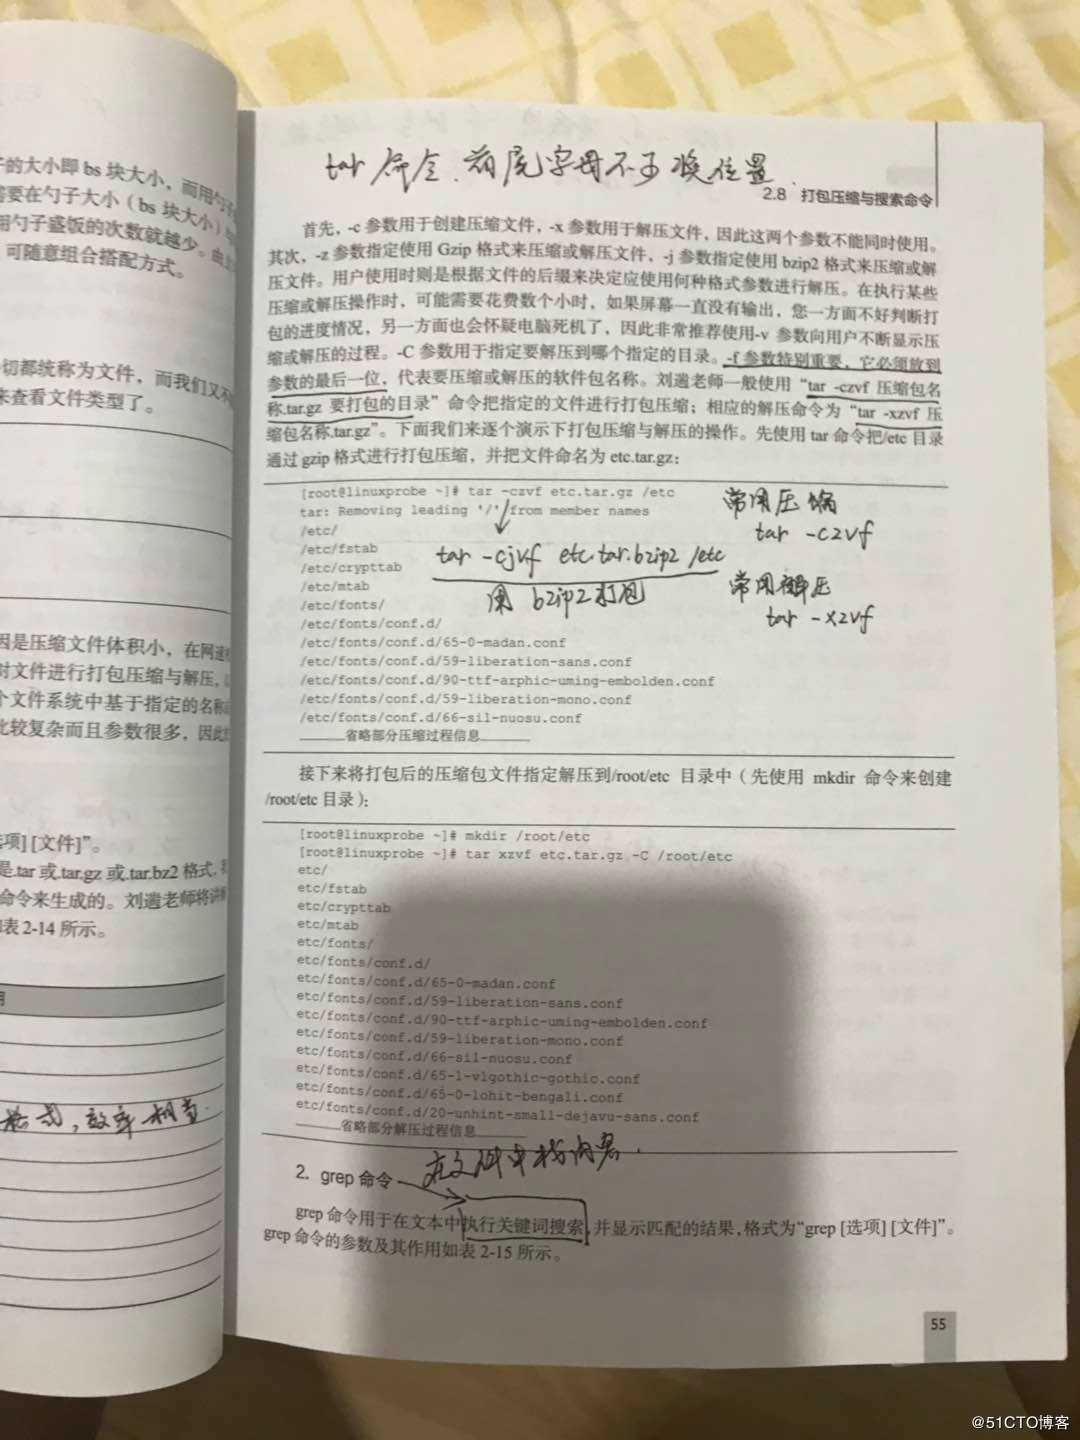 子的大小即 bs 块大小，而用勺子
需要在勺子大小（bs 块大小）与
用勺子盛饭的次数就越少。由
可随意组合搭配方式。
切都统称为文件，而我们又不
来查看文件类型了。
因是压缩文件体积小，在网速
对文件进行打包压缩与解压，
个文件系统中基于指定的名称
比较复杂而且参数很多，因此
选项] [文件]”。
是.tar 或.tar.gz 或.tar.bz2 格式，
命令来生成的。刘遄老师将讲
如表 2-14 所示。
用
格式，效率相当.
tar 命令、首尾字母不予换位置
2.8 打包压缩与搜索命令
首先，-c 参数用于创建压缩文件，-x 参数用于解压文件，因此这两个参数不能同时使用。
其次，-z 参数指定使用 Gzip 格式来压缩或解压文件，-j 参数指定使用 bzip2 格式来压缩或解
压文件。用户使用时则是根据文件的后缀来决定应使用何种格式参数进行解压。在执行某些
压缩或解压操作时，可能需要花费数个小时，如果屏幕一直没有输出，您一方面不好判断打
包的进度情况，另一方面也会怀疑电脑死机了，因此非常推荐使用-v 参数向用户不断显示压
缩或解压的过程。-C 参数用于指定要解压到哪个指定的目录。-f 参数特别重要，它必须放到
参数的最后一位，代表要压缩或解压的软件包名称。刘遄老师一般使用“tar -czvf 压缩包名
称.tar.gz 要打包的目录”命令把指定的文件进行打包压缩；相应的解压命令为“tar -xzvf 压
缩包名称.tar.gz”。下面我们来逐个演示下打包压缩与解压的操作。先使用 tar 命令把/etc 目录
通过 gzip 格式进行打包压缩，并把文件命名为 etc.tar.gz：
[root@linuxprobe ~]# tar -czvf etc.tar.gz /etc
tar: Removing leading '/' from member names
/etc/
/etc/fstab
/etc/crypttab
/etc/mtab
/etc/fonts/
/etc/fonts/conf.d/
/etc/fonts/conf.d/65-0-madan.conf
/etc/fonts/conf.d/59-liberation-sans.conf
/etc/fonts/conf.d/90-ttf-arphic-uming-embolden.conf
/etc/fonts/conf.d/59-liberation-mono.conf
/etc/fonts/conf.d/66-sil-nuosu.conf
省略部分压缩过程信息
tar -cjvf etc.tar.bzip2 /etc
用 bzip2打包
常用压缩
tar -czvf
常用解压
tar -xzvf
接下来将打包后的压缩包文件指定解压到/root/etc 目录中（先使用 mkdir 命令来创建
/root/etc 目录）：
[root@linuxprobe ~]# mkdir /root/etc
[root@linuxprobe ~]# tar xzvf etc.tar.gz -C /root/etc
etc/
etc/fstab
etc/crypttab
etc/mtab
etc/fonts/
etc/fonts/conf.d/
etc/fonts/conf.d/65-0-madan.conf
etc/fonts/conf.d/59-liberation-sans.conf
etc/fonts/conf.d/90-ttf-arphic-uming-embolden.conf
etc/fonts/conf.d/59-liberation-mono.conf
etc/fonts/conf.d/66-sil-nuosu.conf
etc/fonts/conf.d/65-1-vlgothic-gothic.conf
etc/fonts/conf.d/65-0-lohit-bengali.conf
etc/fonts/conf.d/20-unhint-small-dejavu-sans.conf
省略部分解压过程信息
在文件中找内容.
2. grep 命令
grep 命令用于在文本中执行关键词搜索，并显示匹配的结果，格式为“grep [选项] [文件]”。
grep 命令的参数及其作用如表 2-15 所示。
55
@51CTO博客